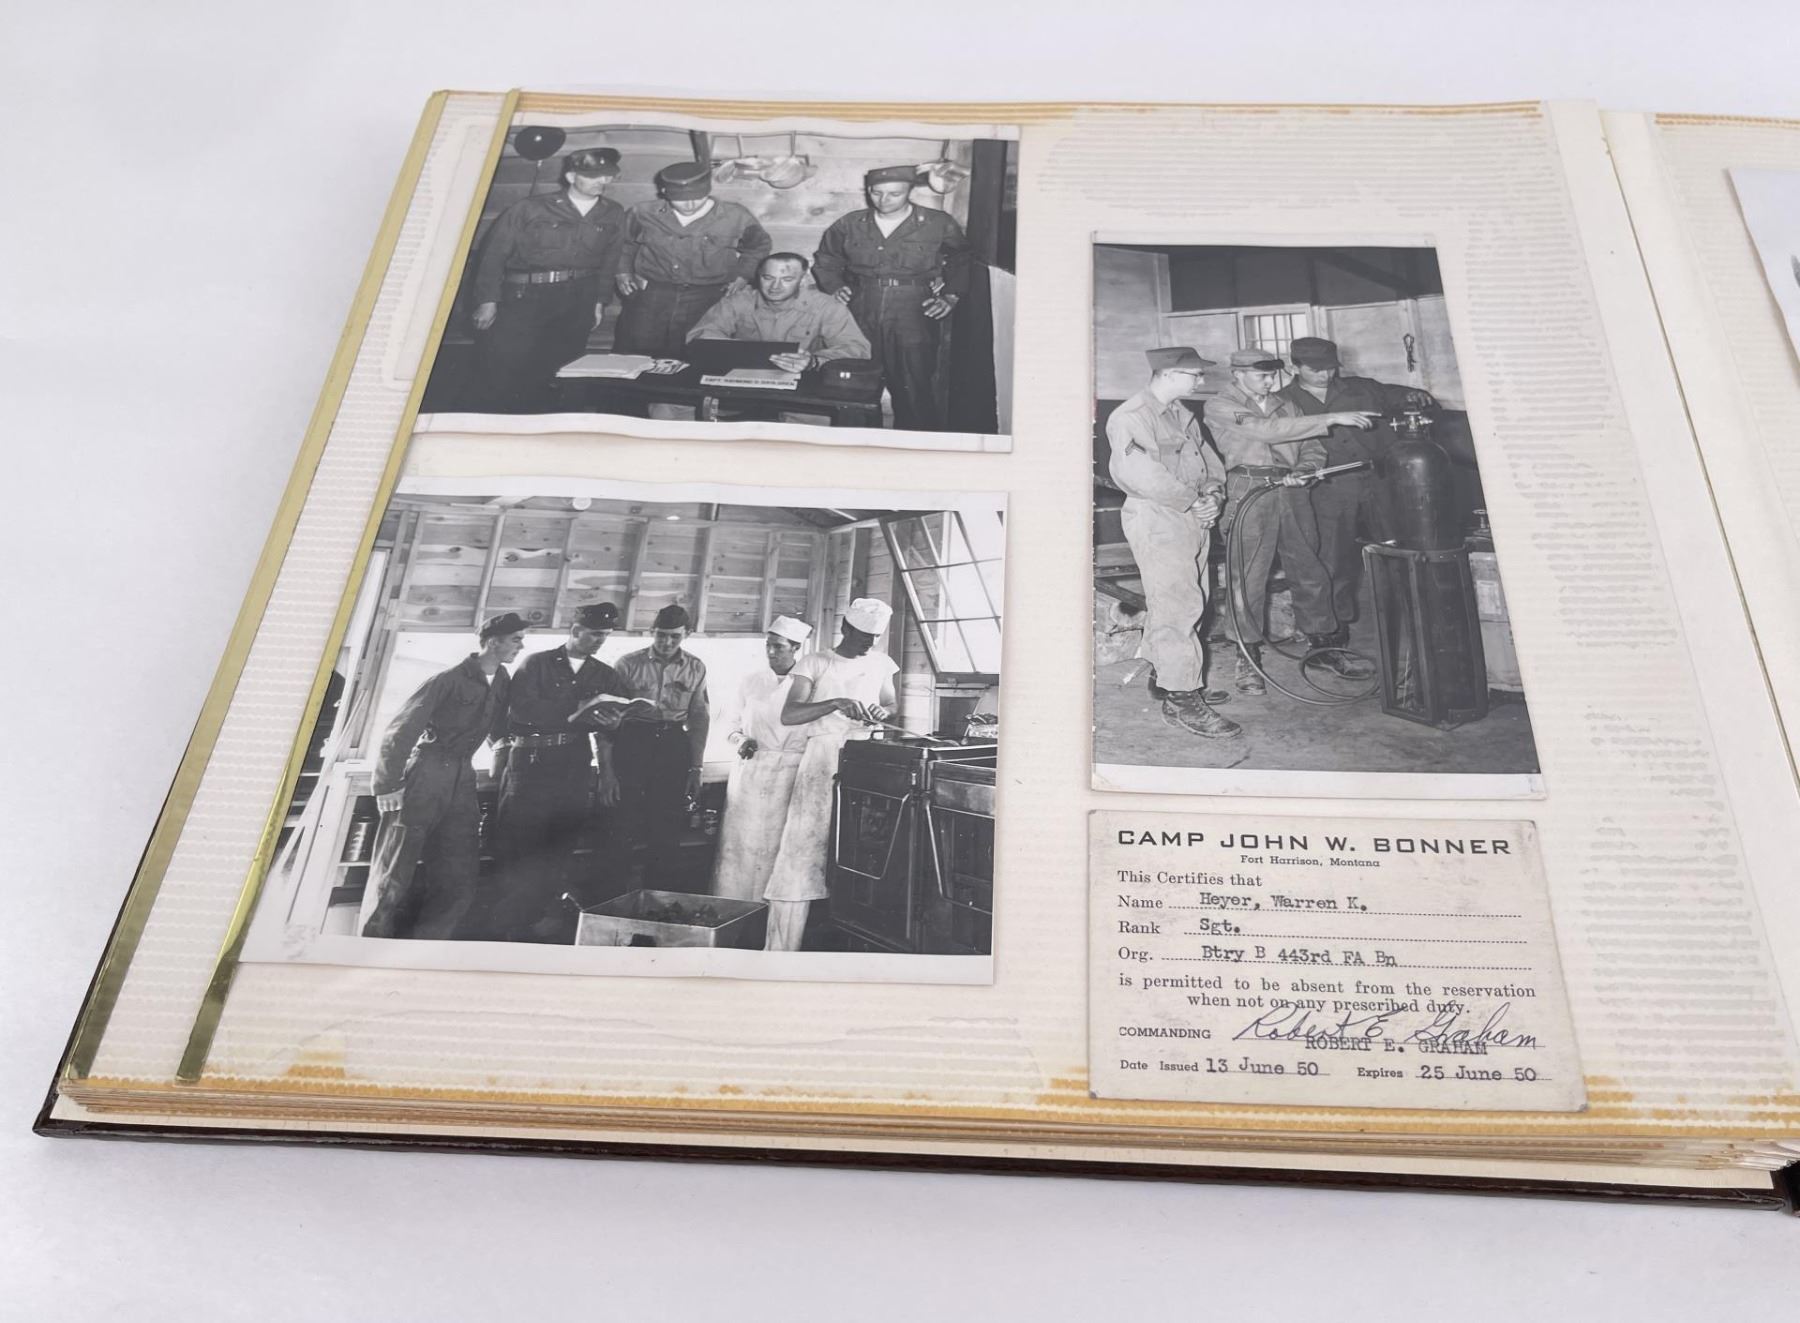 CAPT. RAYMOND G.
CAMP JOHN W. BONNER
Fort Harrison, Montana
This Certifies that
Name Heyer, Warren K.
Rank Sgt.
Org. Btry B 443rd FA Bn
is permitted to be absent from the reservation
when not on any prescribed duty.
COMMANDING Robert E. Graham
ROBERT E. GRAHAM
Date Issued 13 June 50 Expires 25 June 50